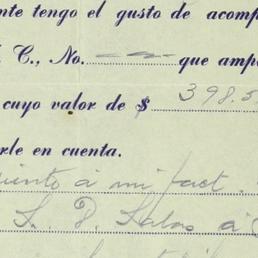 nte tengo el gusto de acomp
C., No. que amp
cuyo valor de $ 398.5
rle en cuenta.
á mi fact.
L. D. Salas á